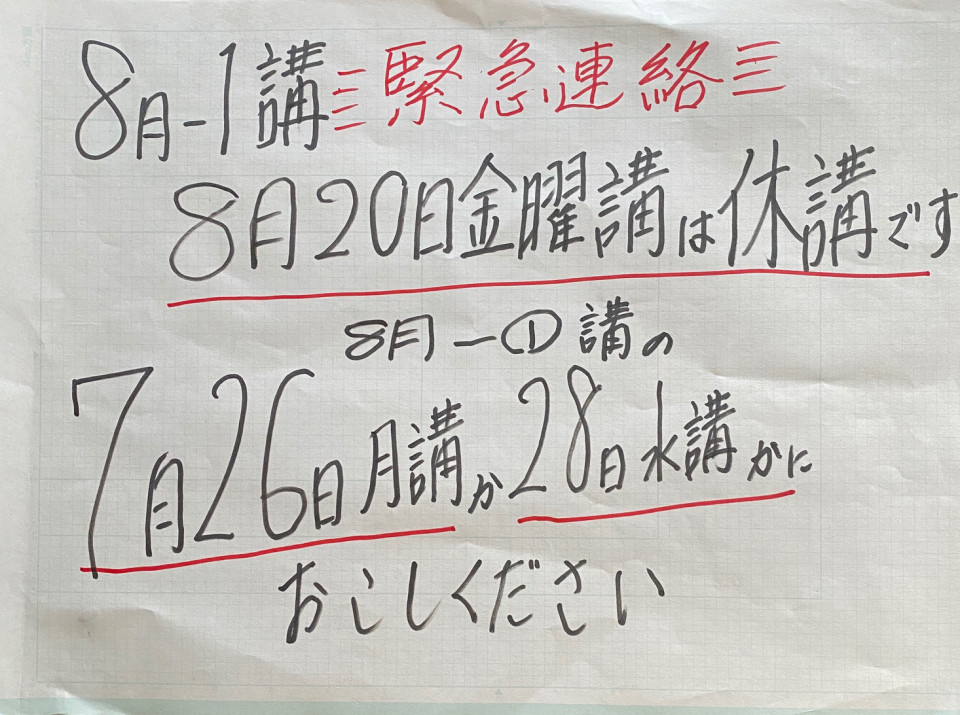 8月-1講 三緊急連絡三
8月20日金曜講は休講です
8月-①講の
7月26日月講か28日水講かに
おこしください